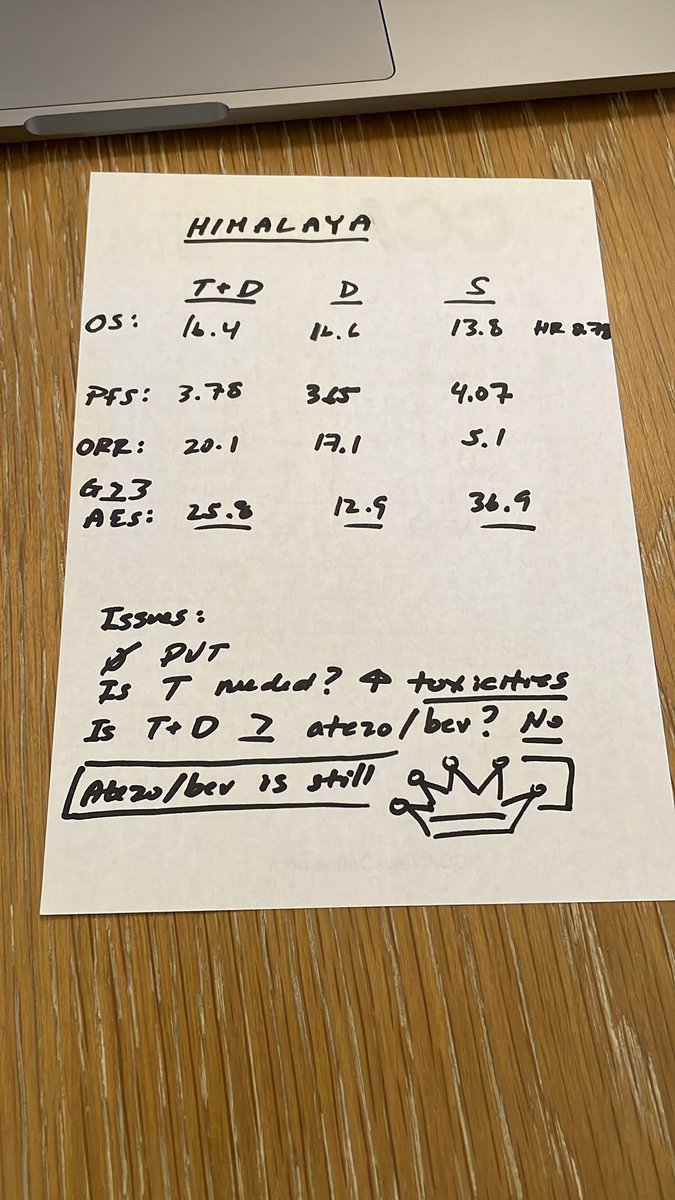 HIMALAYA
T+D D S
OS: 16.4 16.6 13.8 HR 0.78
PFS: 3.78 3.65 4.07
ORR: 20.1 17.1 5.1
G≥3
AES: 25.8 12.9 36.9
Issues:
Ø PVT
Is T needed? ↑ toxicities
Is T+D ≥ atezo/bev? No
Atezo/bev is still